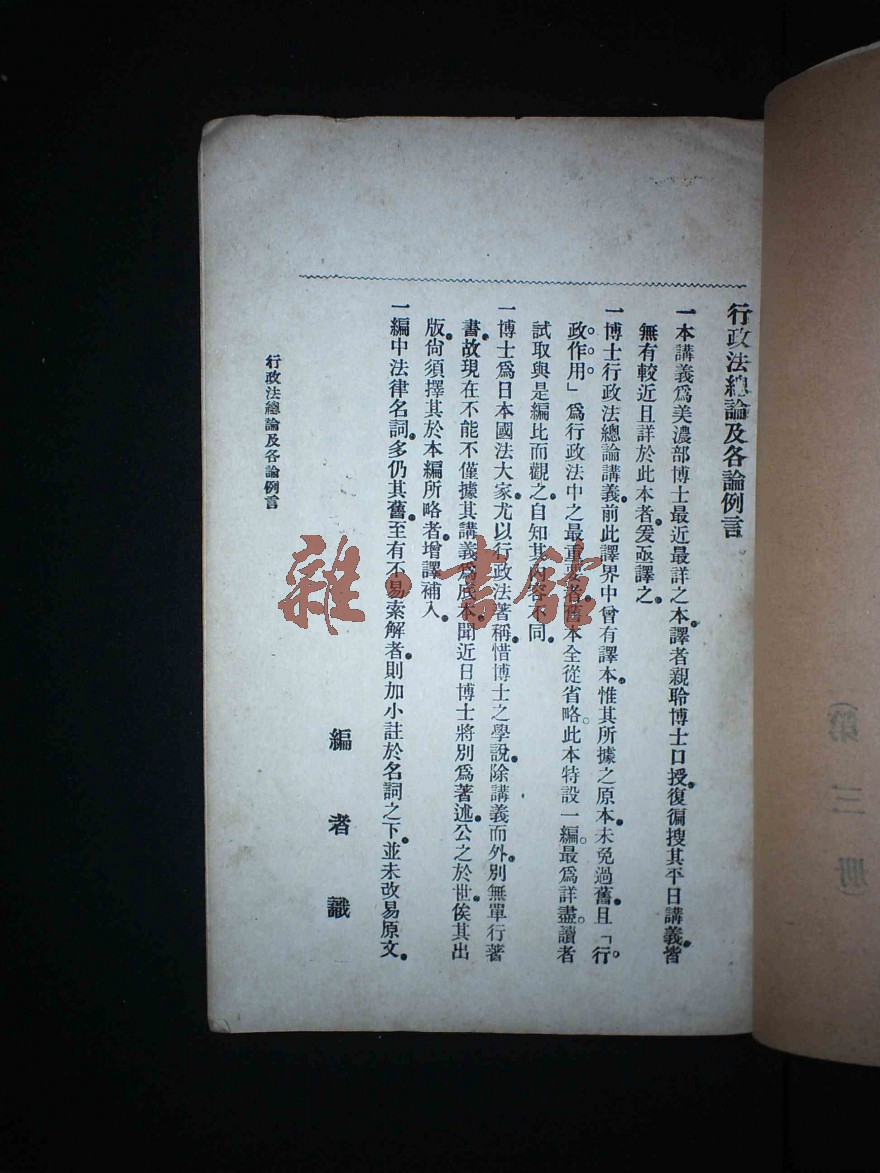 行政法總論及各論例言
一本講義爲美濃部博士最近最詳之本譯者親聆博士口授復徧搜其平日講義皆
無有較近且詳於此本者爰亟譯之
一博士行政法總論講義前此譯界中曾有譯本惟其所據之原本未免過舊且「行
政作用」爲行政法中之最重要者舊本全從省略此本特設一編最爲詳盡讀者
試取與是編比而觀之自知其內容不同
一博士爲日本國法大家尤以行政法著稱惜博士之學說除講義而外別無單行著
書故現在不能不僅據其講義爲底本聞近日博士將別爲著述公之於世俟其出
版尙須擇其於本編所略者增譯補入
一編中法律名詞多仍其舊至有不易索解者則加小註於名詞之下並未改易原文
編者識
行政法總論及各論例言
雜·書館
(第三册)